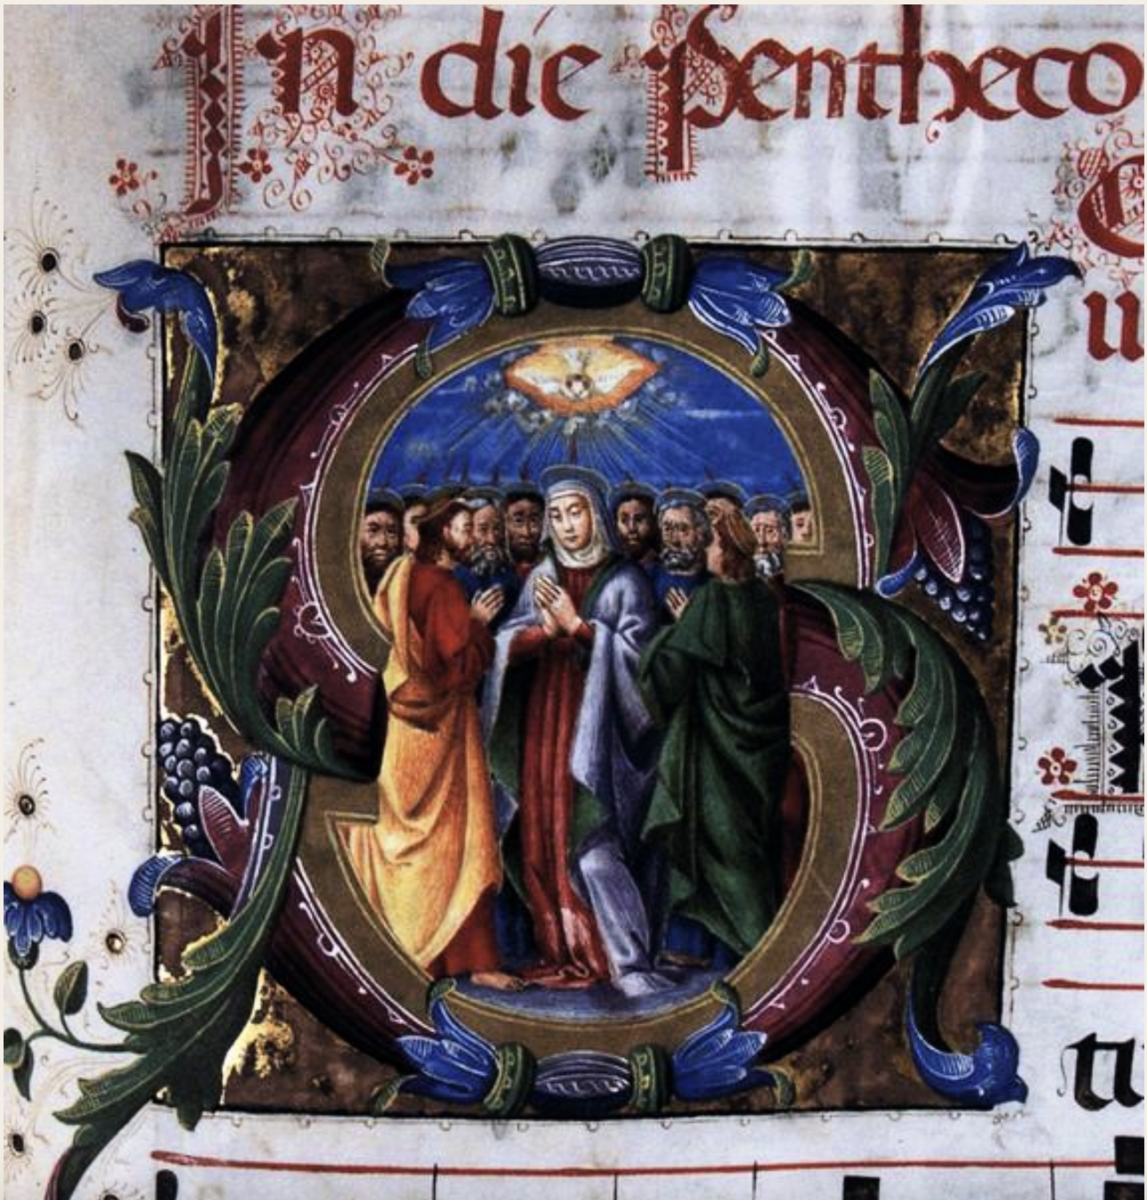 In die pentheco
u
S